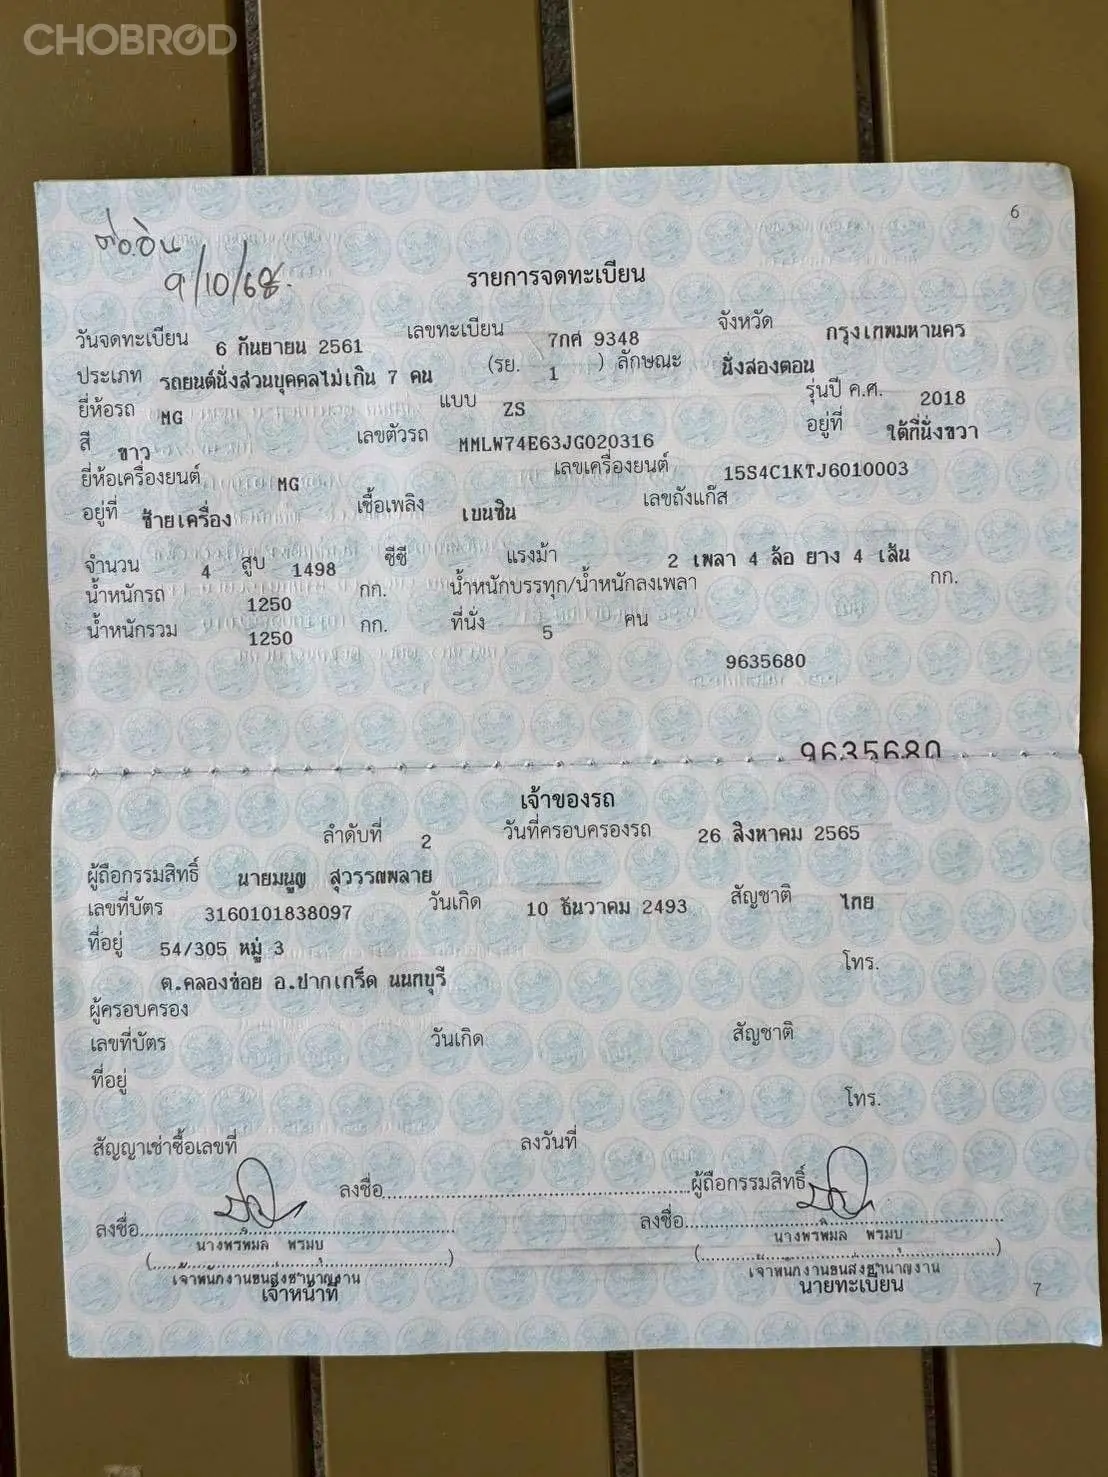 CHOBROD
6
ต่อ.อิน
9/10/68.
รายการจดทะเบียน
วันจดทะเบียน 6 กันยายน 2561 เลขทะเบียน 7กศ 9348 จังหวัด กรุงเทพมหานคร
ประเภท รถยนต์นั่งส่วนบุคคลไม่เกิน 7 คน (รย. 1 ) ลักษณะ นั่งสองตอน
ยี่ห้อรถ MG แบบ ZS รุ่นปี ค.ศ. 2018
สี ขาว เลขตัวรถ MMLW74E63JG020316 อยู่ที่ ใต้ที่นั่งขวา
ยี่ห้อเครื่องยนต์ MG เลขเครื่องยนต์ 15S4C1KTJ6010003
อยู่ที่ ซ้ายเครื่อง เชื้อเพลิง เบนซิน เลขถังแก๊ส
จำนวน 4 สูบ 1498 ซีซี แรงม้า 2 เพลา 4 ล้อ ยาง 4 เส้น
น้ำหนักรถ 1250 กก. น้ำหนักบรรทุก/น้ำหนักลงเพลา กก.
น้ำหนักรวม 1250 กก. ที่นั่ง 5 คน
9635680
9635680
เจ้าของรถ
ลำดับที่ 2 วันที่ครอบครองรถ 26 สิงหาคม 2565
ผู้ถือกรรมสิทธิ์ นายมนูญ สุวรรณพลาย
เลขที่บัตร 3160101838097 วันเกิด 10 ธันวาคม 2493 สัญชาติ ไทย
ที่อยู่ 54/305 หมู่ 3 โทร.
ต.คลองข่อย อ.ปากเกร็ด นนทบุรี
ผู้ครอบครอง
เลขที่บัตร วันเกิด สัญชาติ
ที่อยู่ โทร.
สัญญาเช่าซื้อเลขที่ ลงวันที่
ลงชื่อ ผู้ถือกรรมสิทธิ์
ลงชื่อ ลงชื่อ
นางพรพมล พรมบุ นางพรพมล พรมบุ
( ) ( )
เจ้าพนักงานขนส่งชำนาญงาน เจ้าพนักงานขนส่งชำนาญงาน
เจ้าหน้าที่ นายทะเบียน
7